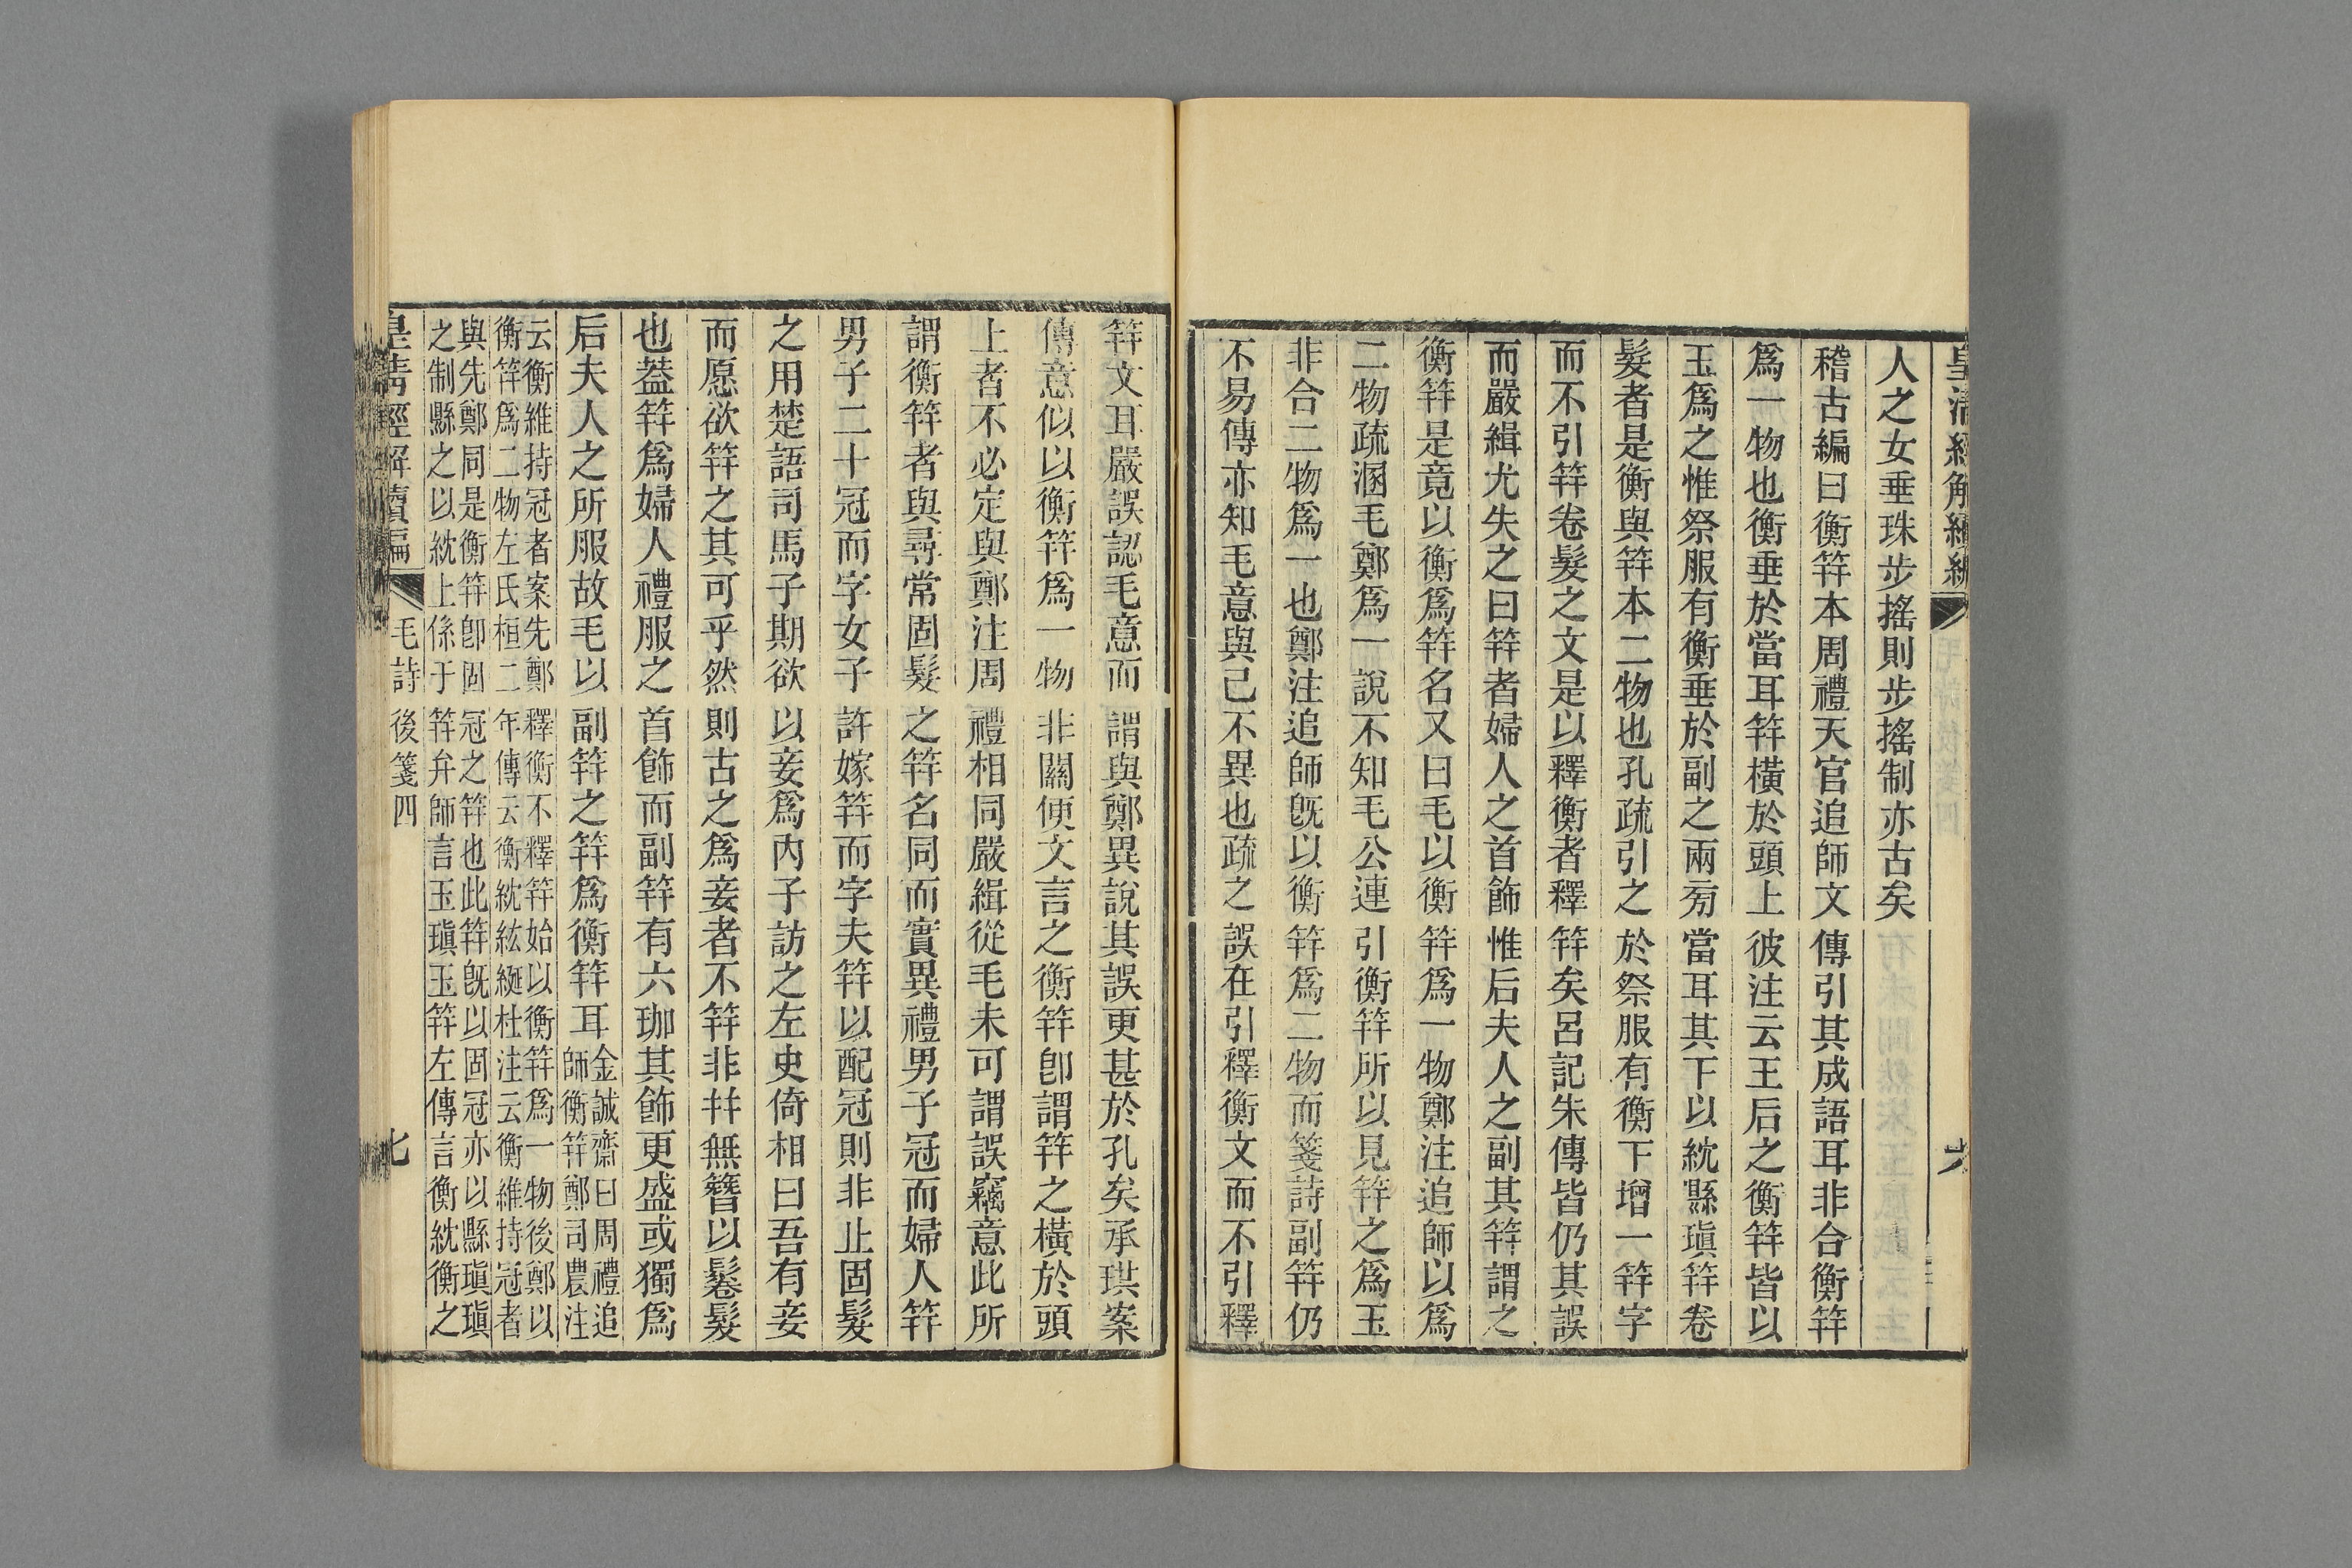 皇清經解續編
六
人之女垂珠步搖則步搖制亦古矣
稽古編曰衡笄本周禮天官追師文傳引其成語耳非合衡笄
爲一物也衡垂於當耳笄橫於頭上彼注云王后之衡笄皆以
玉爲之惟祭服有衡垂於副之兩旁當耳其下以紞縣瑱笄卷
髮者是衡與笄本二物也孔疏引之於祭服有衡下增一笄字
而不引笄卷髮之文是以釋衡者釋笄矣呂記朱傳皆仍其誤
而嚴緝尤失之曰笄者婦人之首飾惟后夫人之副其笄謂之
衡笄是竟以衡爲笄名又曰毛以衡笄爲一物鄭注追師以爲
二物疏溷毛鄭爲一說不知毛公連引衡笄所以見笄之爲玉
非合二物爲一也鄭注追師旣以衡笄爲二物而箋詩副笄仍
不易傳亦知毛意與己不異也疏之誤在引釋衡文而不引釋
笄文耳嚴誤認毛意而謂與鄭異說其誤更甚於孔矣承珙案
傳意似以衡笄爲一物非關便文言之衡笄卽謂笄之橫於頭
上者不必定與鄭注周禮相同嚴緝從毛未可謂誤竊意此所
謂衡笄者與尋常固髮之笄名同而實異禮男子冠而婦人笄
男子二十冠而字女子許嫁笄而字夫笄以配冠則非止固髮
之用楚語司馬子期欲以妾爲內子訪之左史倚相曰吾有妾
而愿欲笄之其可乎然則古之爲妾者不笄非幷無簪以鬈髮
也葢笄爲婦人禮服之首飾而副笄有六珈其飾更盛或獨爲
后夫人之所服故毛以副笄之笄爲衡笄耳
金誠齋曰周禮追
師衡笄鄭司農注
云衡維持冠者案先鄭釋衡不釋笄始以衡笄爲一物後鄭以
衡笄爲二物左氏桓二年傳云衡紞紘綖杜注云衡維持冠者
與先鄭同是衡笄卽固冠之笄也此笄旣以固冠亦以縣瑱瑱
之制縣之以紞上係于笄弁師言玉瑱玉笄左傳言衡紞衡之
皇清經解續編
毛詩後箋四
七